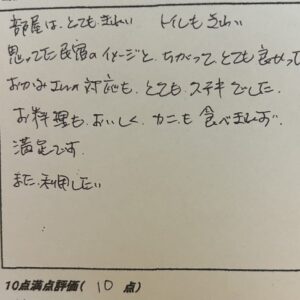 部屋は、とてもきれい トイレもきれい
思ってた民宿のイメージと、ちがって、とても良かっ
おかみさんの対応も、とても、ステキでした。
お料理も、おいしく、カニも食べました
満足です。
また、利用したい
10点満点評価( 10 点)